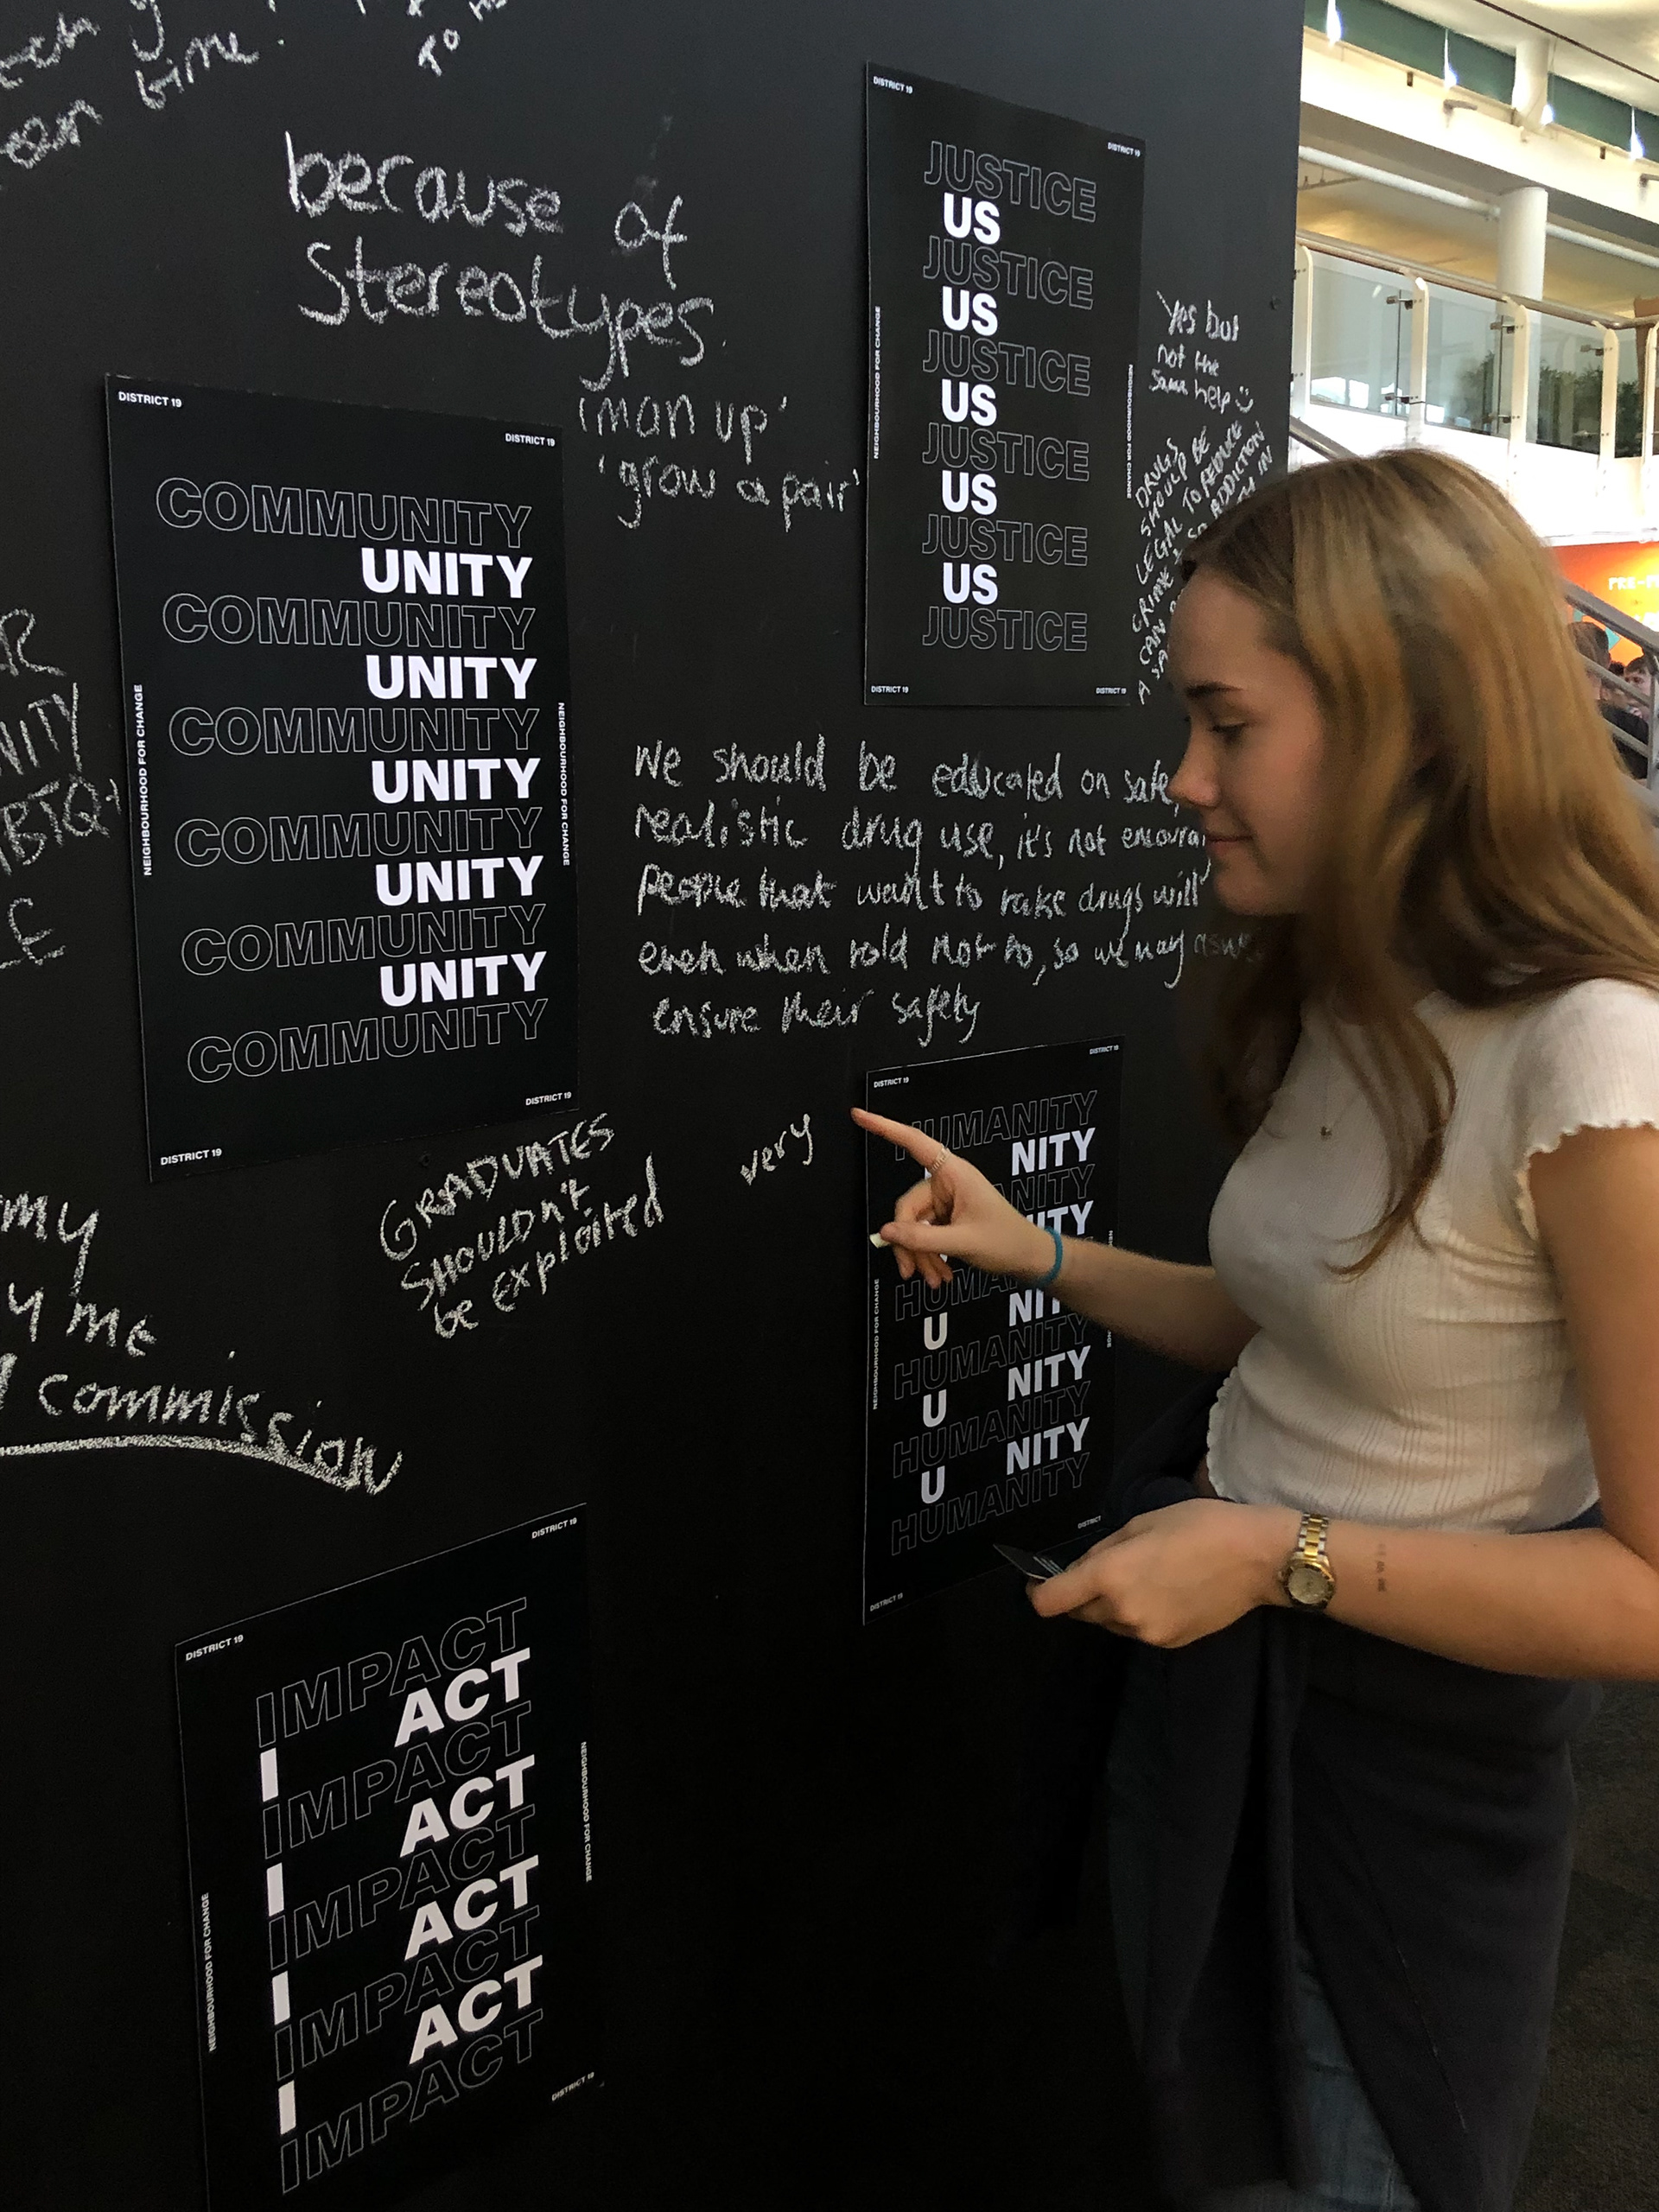 time!
TO
because of
Stereotypes.
'man up'
'grow a pair'
DISTRICT 19
DISTRICT 19
COMMUNITY
UNITY
COMMUNITY
UNITY
COMMUNITY
UNITY
COMMUNITY
UNITY
COMMUNITY
UNITY
COMMUNITY
NEIGHBOURHOOD FOR CHANGE
NEIGHBOURHOOD FOR CHANGE
DISTRICT 19
DISTRICT 19
DISTRICT 19
DISTRICT 19
JUSTICE
US
JUSTICE
US
JUSTICE
US
JUSTICE
US
JUSTICE
US
JUSTICE
NEIGHBOURHOOD FOR CHANGE
NEIGHBOURHOOD FOR CHANGE
DISTRICT 19
DISTRICT 19
Yes but
not the
same help
DRUGS
SHOULD BE
LEGAL TO REDUCE
CRIME & SO ADDICTION
CAN
A
IN
We should be educated on safe,
realistic drug use, it's not
people that want to take drugs will
even when told not to, so we may
ensure their safety
GRADUATES
SHOULDN'T
be exploited
very
my
me
commission
DISTRICT 19
DISTRICT 19
HUMANITY
NITY
NITY
HUMANITY
U NITY
HUMANITY
U NITY
HUMANITY
U NITY
HUMANITY
NEIGHBOURHOOD FOR CHANGE
DISTRICT 19
DISTRICT
DISTRICT 19
DISTRICT 19
IMPACT
I ACT
IMPACT
I ACT
IMPACT
I ACT
IMPACT
I ACT
IMPACT
NEIGHBOURHOOD FOR CHANGE
NEIGHBOURHOOD FOR CHANGE
DISTRICT 19